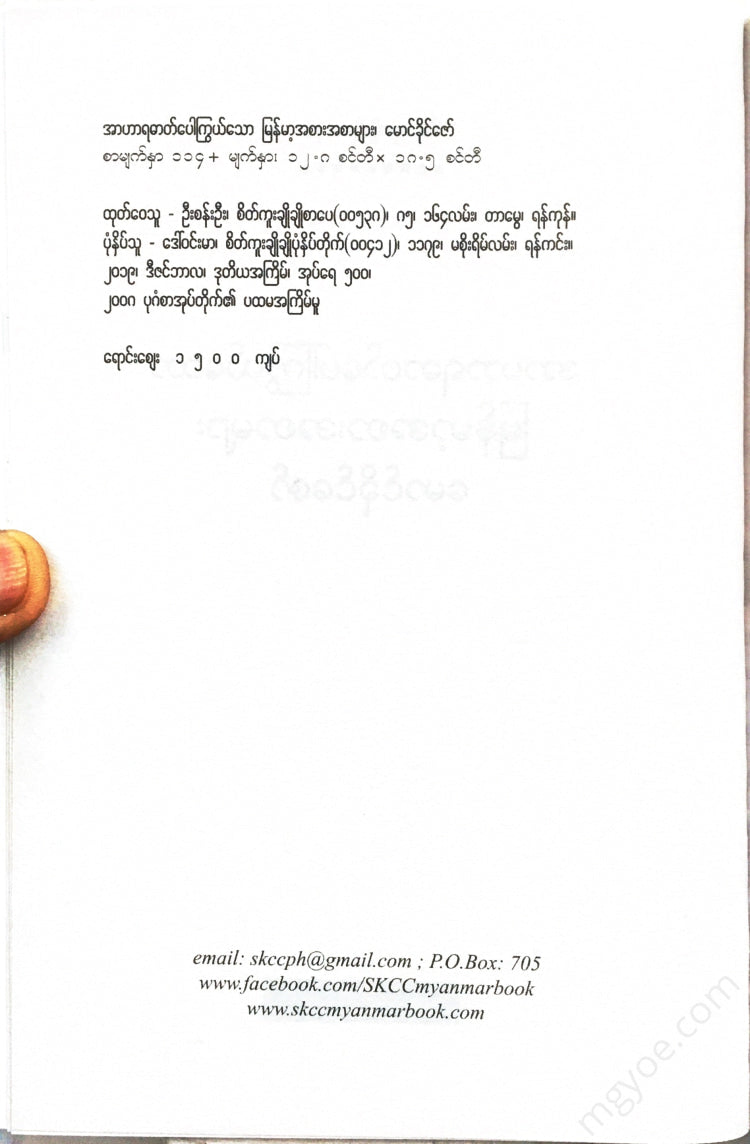 အာဟာရဓာတ်ပေါကြွယ်သော မြန်မာ့အစားအစာများ၊ မောင်ခိုင်ဇော်
စာမျက်နှာ ၁၁၄ + မျက်နှာ၊ ၁၂.၈ စင်တီ × ၁၈.၅ စင်တီ
ထုတ်ဝေသူ - ဦးစန်းဦး၊ စိတ်ကူးချိုချိုစာပေ(၀၀၅၃၈)၊ ၈၅၊ ၁၆၄လမ်း၊ တာမွေ၊ ရန်ကုန်။
ပုံနှိပ်သူ - ဒေါ်ဝင်းမာ၊ စိတ်ကူးချိုချိုပုံနှိပ်တိုက်(၀၀၄၁၂)၊ ၁၁၇၉၊ မစိုးရိမ်လမ်း၊ ရန်ကင်း။
၂၀၁၉၊ ဒီဇင်ဘာလ၊ ဒုတိယအကြိမ်၊ အုပ်ရေ ၅၀၀၊
၂၀၀၈ ပုဂံစာအုပ်တိုက်၏ ပထမအကြိမ်မူ
ရောင်းဈေး ၁ ၅ ၀ ၀ ကျပ်
email: skccph@gmail.com ; P.O.Box: 705
www.facebook.com/SKCCmyanmarbook
www.skccmyanmarbook.com
mgyoe.com